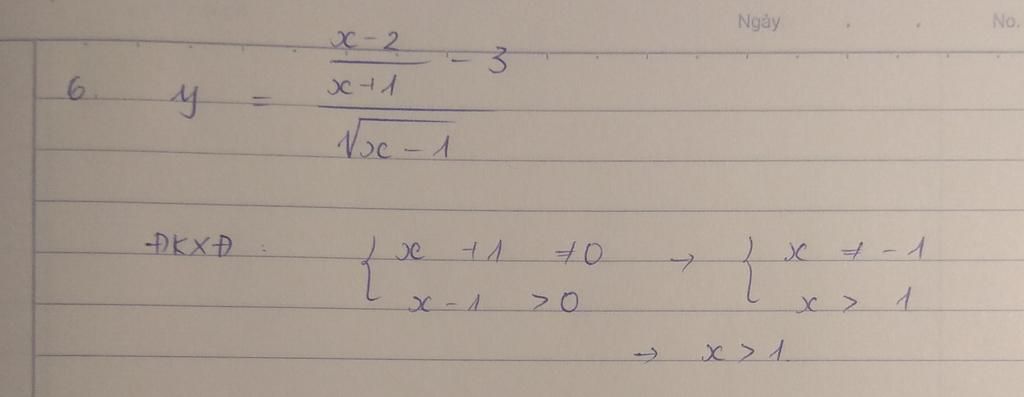 Ngày . . No.
6. y = \frac{\frac{x-2}{x+1} - 3}{\sqrt{x-1}}
ĐKXĐ : { x + 1 ≠ 0 → { x ≠ - 1
x - 1 > 0 x > 1
→ x > 1